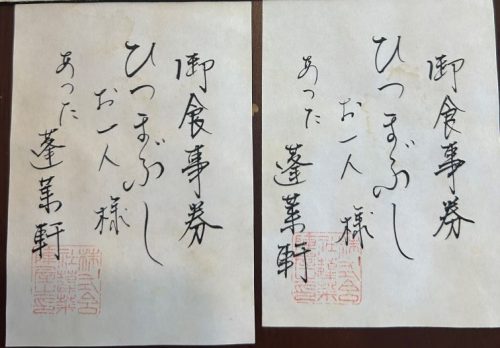 御食事券
ひつまぶし
お一人様
あつた
蓬莱軒
御食事券
ひつまぶし
お一人様
あつた
蓬莱軒